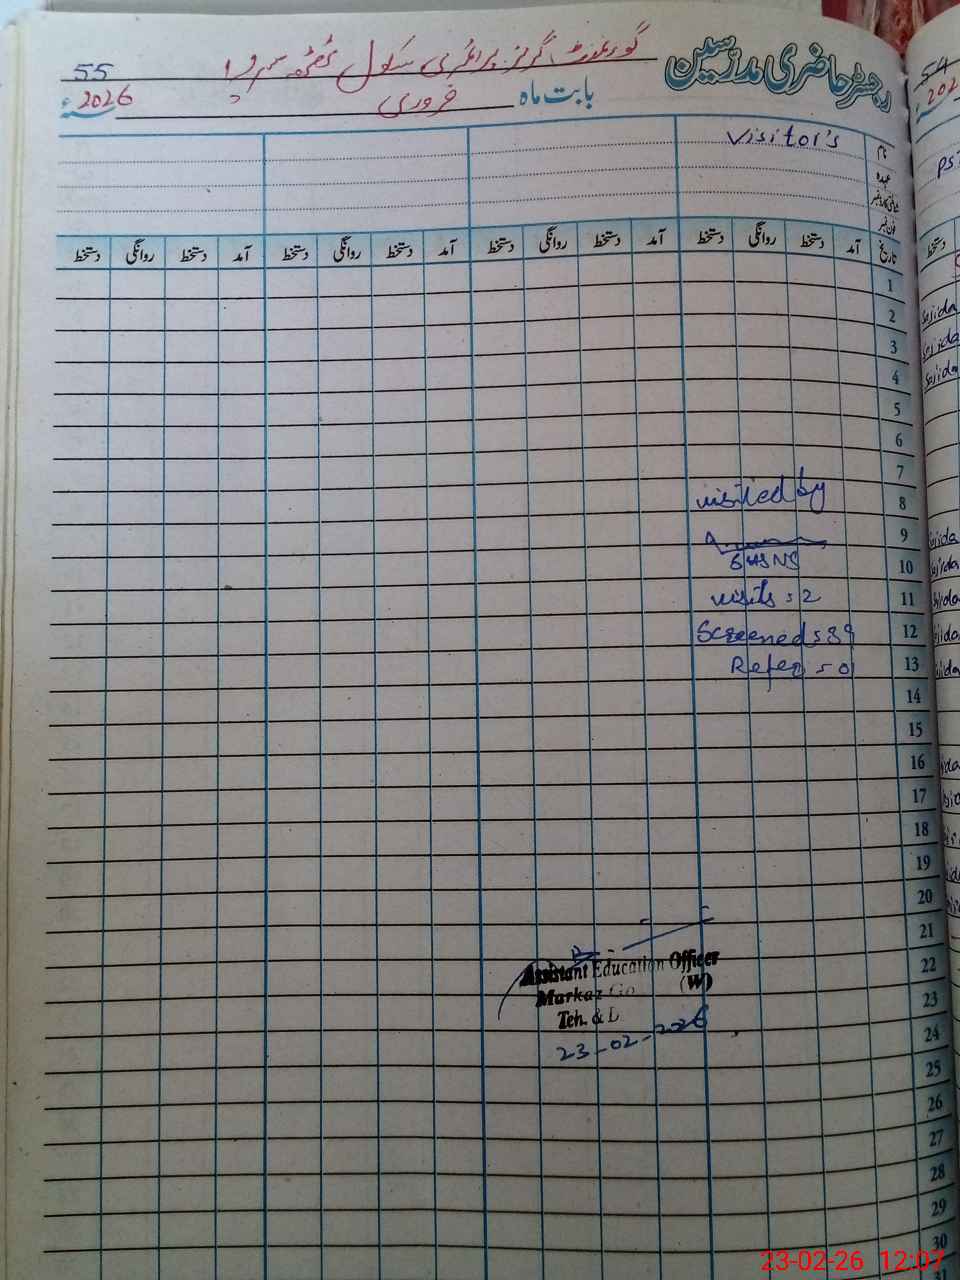 رجسٹر حاضری مدرسین
گورنمنٹ گرلز پرائمری سکول ٹھٹھہ
55
54
بابت ماہ فروری 2026ء
202
Visitor's
نام
عہدہ
PST
فون نمبر
تاریخ آمد دستخط روانگی دستخط آمد دستخط روانگی دستخط آمد دستخط روانگی دستخط آمد دستخط روانگی دستخط
دستخط
1
2
Sajida
3
Sajida
4
Sajida
5
6
7
8
visited by
9
Sajida
10
S H & N S
Sajida
11
visits = 2
Sajida
12
Screened = 39
13
Refer = 01
14
15
16
17
18
19
20
21
22
Assistant Education Officer
23
Markaz Go (W)
Teh. & D
24
23-02-2026
25
26
27
28
29
30
31
23-02-26 12:07